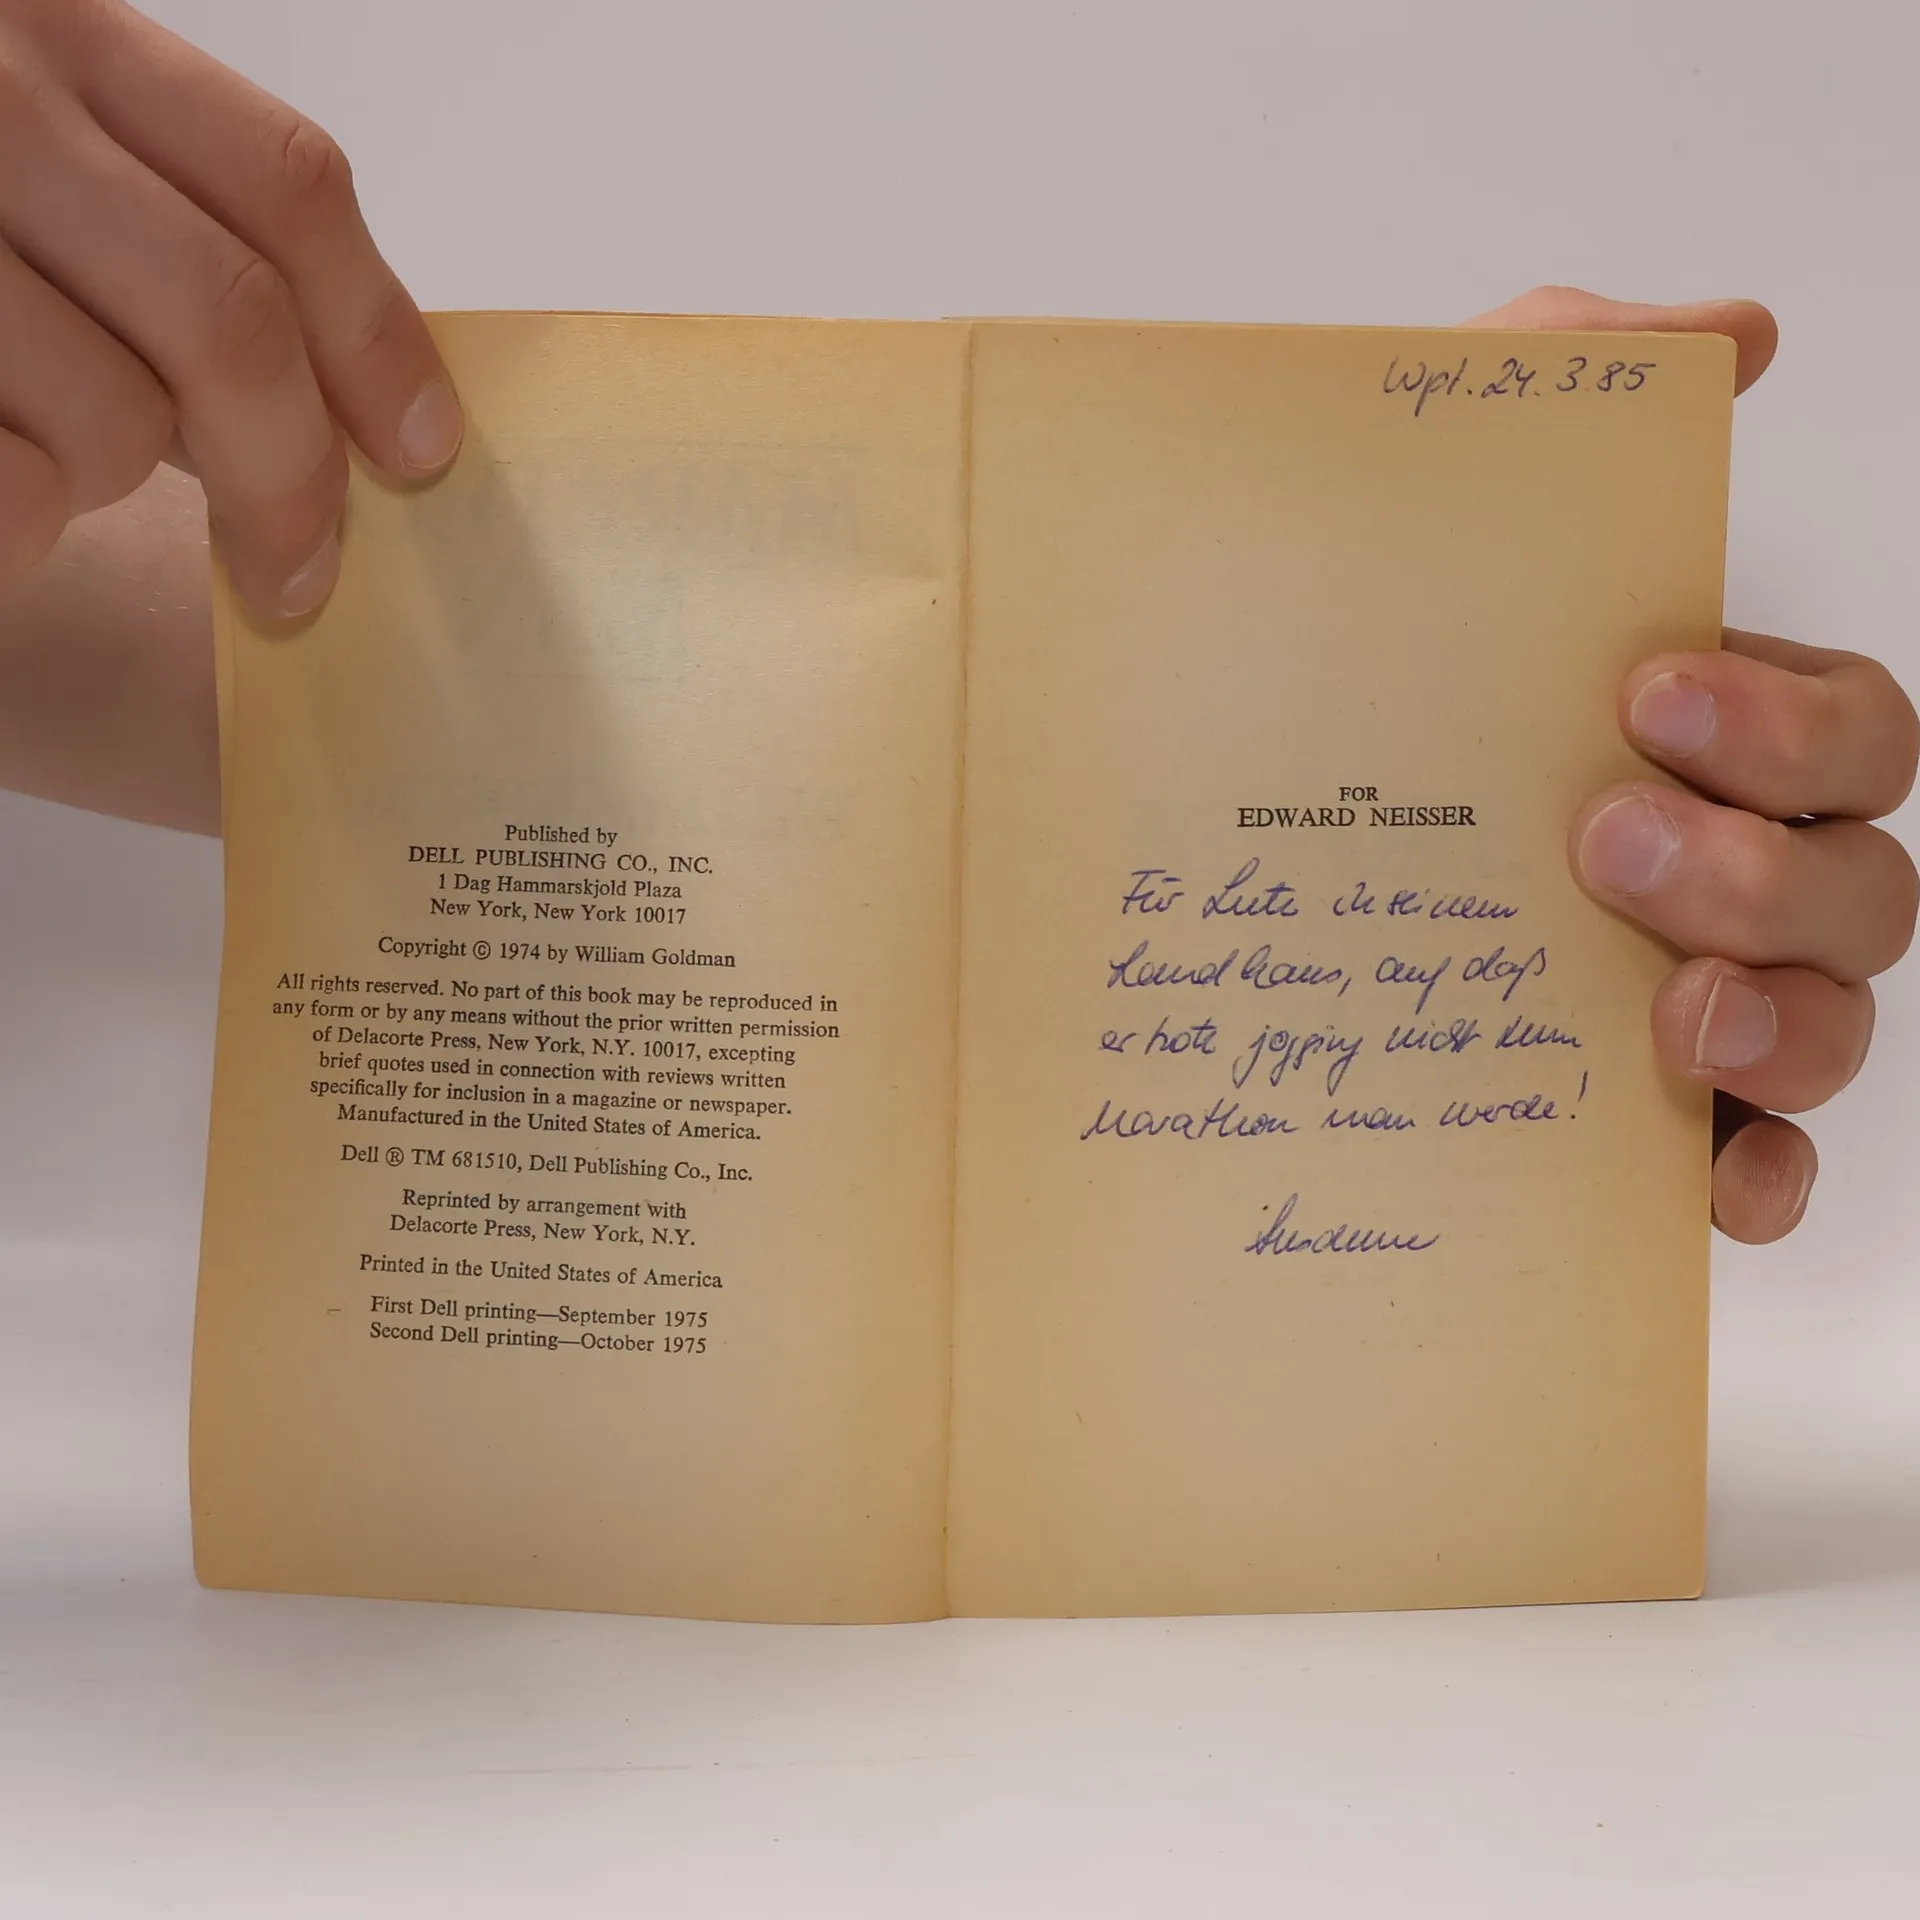 Published by
DELL PUBLISHING CO., INC.
1 Dag Hammarskjold Plaza
New York, New York 10017
Copyright © 1974 by William Goldman
All rights reserved. No part of this book may be reproduced in
any form or by any means without the prior written permission
of Delacorte Press, New York, N.Y. 10017, excepting
brief quotes used in connection with reviews written
specifically for inclusion in a magazine or newspaper.
Manufactured in the United States of America.
Dell ® TM 681510, Dell Publishing Co., Inc.
Reprinted by arrangement with
Delacorte Press, New York, N.Y.
Printed in the United States of America
First Dell printing—September 1975
Second Dell printing—October 1975
Wpt. 24. 3. 85
FOR
EDWARD NEISSER
Für Lutz in seinem
Landhaus, auf daß
er trotz jogging nicht zum
Marathon man werde!
Susanne